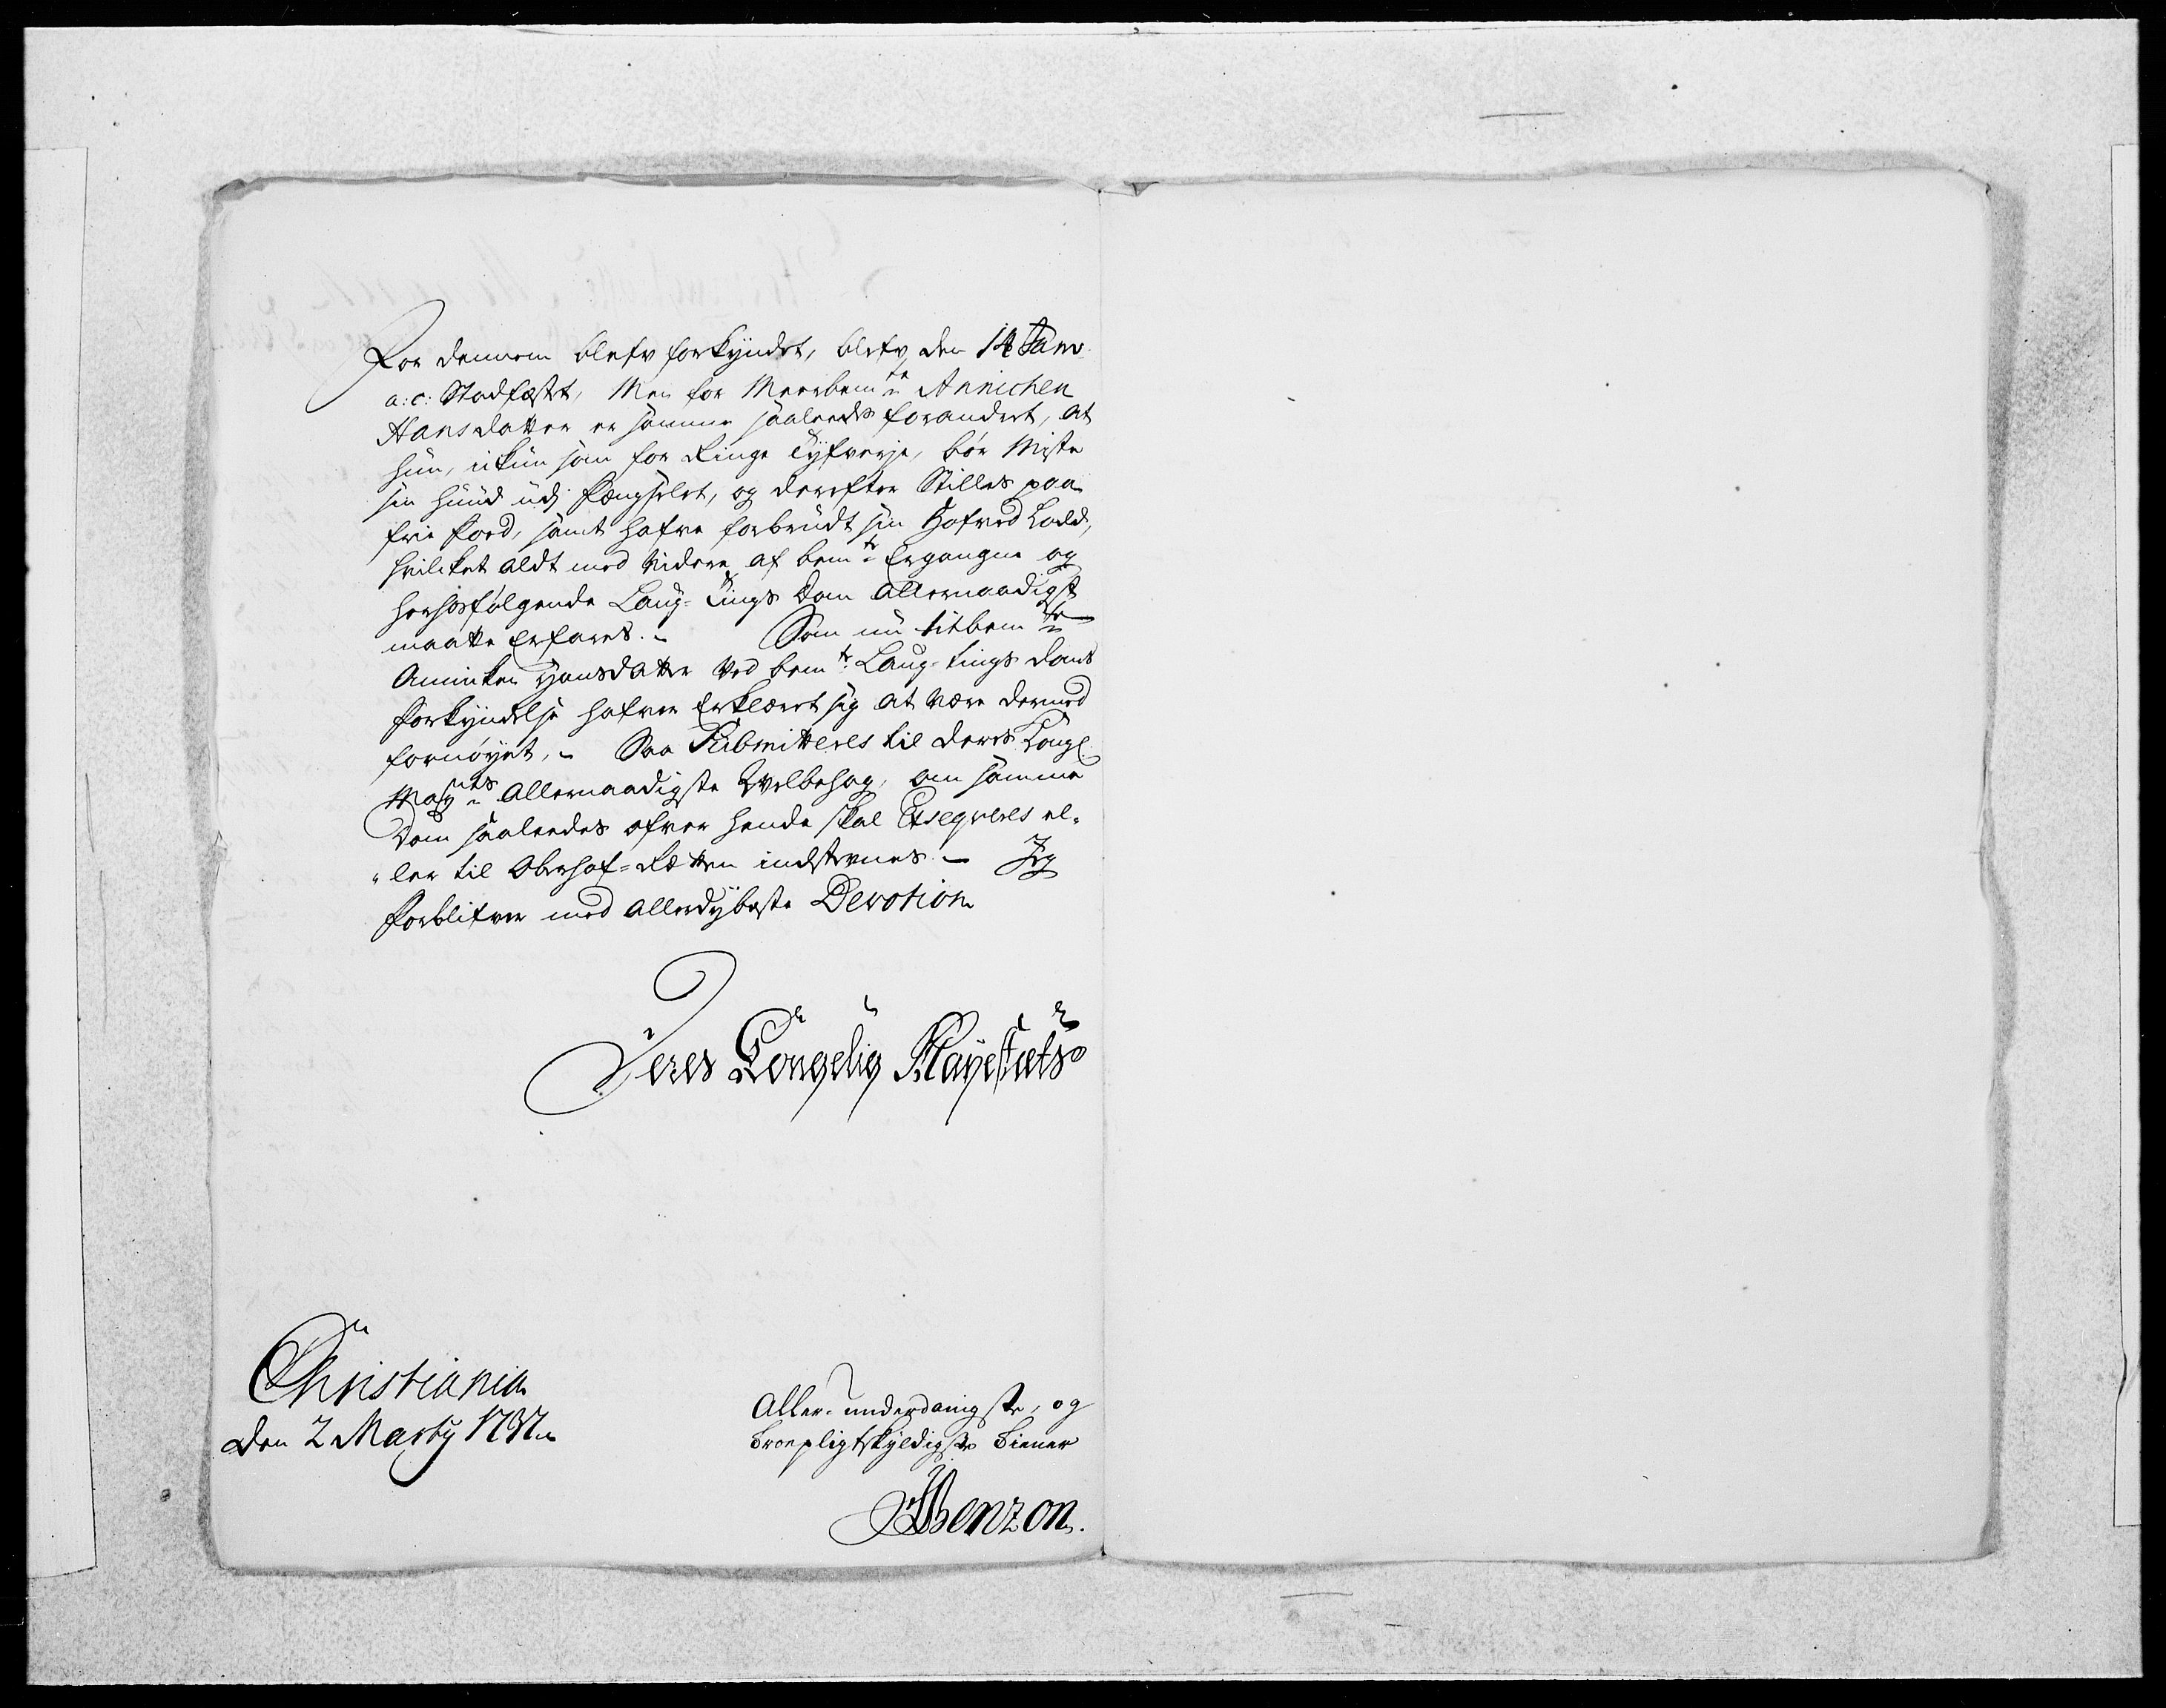 For dennem blefv forkyndet, blefv den 14 Janv
a: c: Stadfæstet, Men for Meerbem.te Annichen
Hansdatter er samme saaleeds forandert, at
hun, ickun som for Ringe Tyfverje, bør Miste
sin Huud udj Fængselet, og derefter Stilles paa
frie Foed, samt hafve forbrudt sin Hofved Lodd,
hvilcket aldt med videre af bem.te Ergangne og
herhosfølgende Laug-Tings Dom allernaadigst
maatte Erfares. Som nu titbem.te
Anniken Hansdatter ved bem.te Laug-tings doms
forkyndelse hafver Erklæret sig at være dermed
fornøyet, Saa Submitteres til Deres Kongl.
May.ts Allernaadigste Velbehag, om samme
Dom saaleedes ofver hende skal Exseqveres el-
ler til Oberhof-Rætten indstevnes. Jeg
forblifver med allerdybeste Devotion
Deres Kongelig Mayestæts
Christiania
den 2 Marty 1737.
Aller-underdanigste, og
troepligtskyldigste tiener
JBenzon.